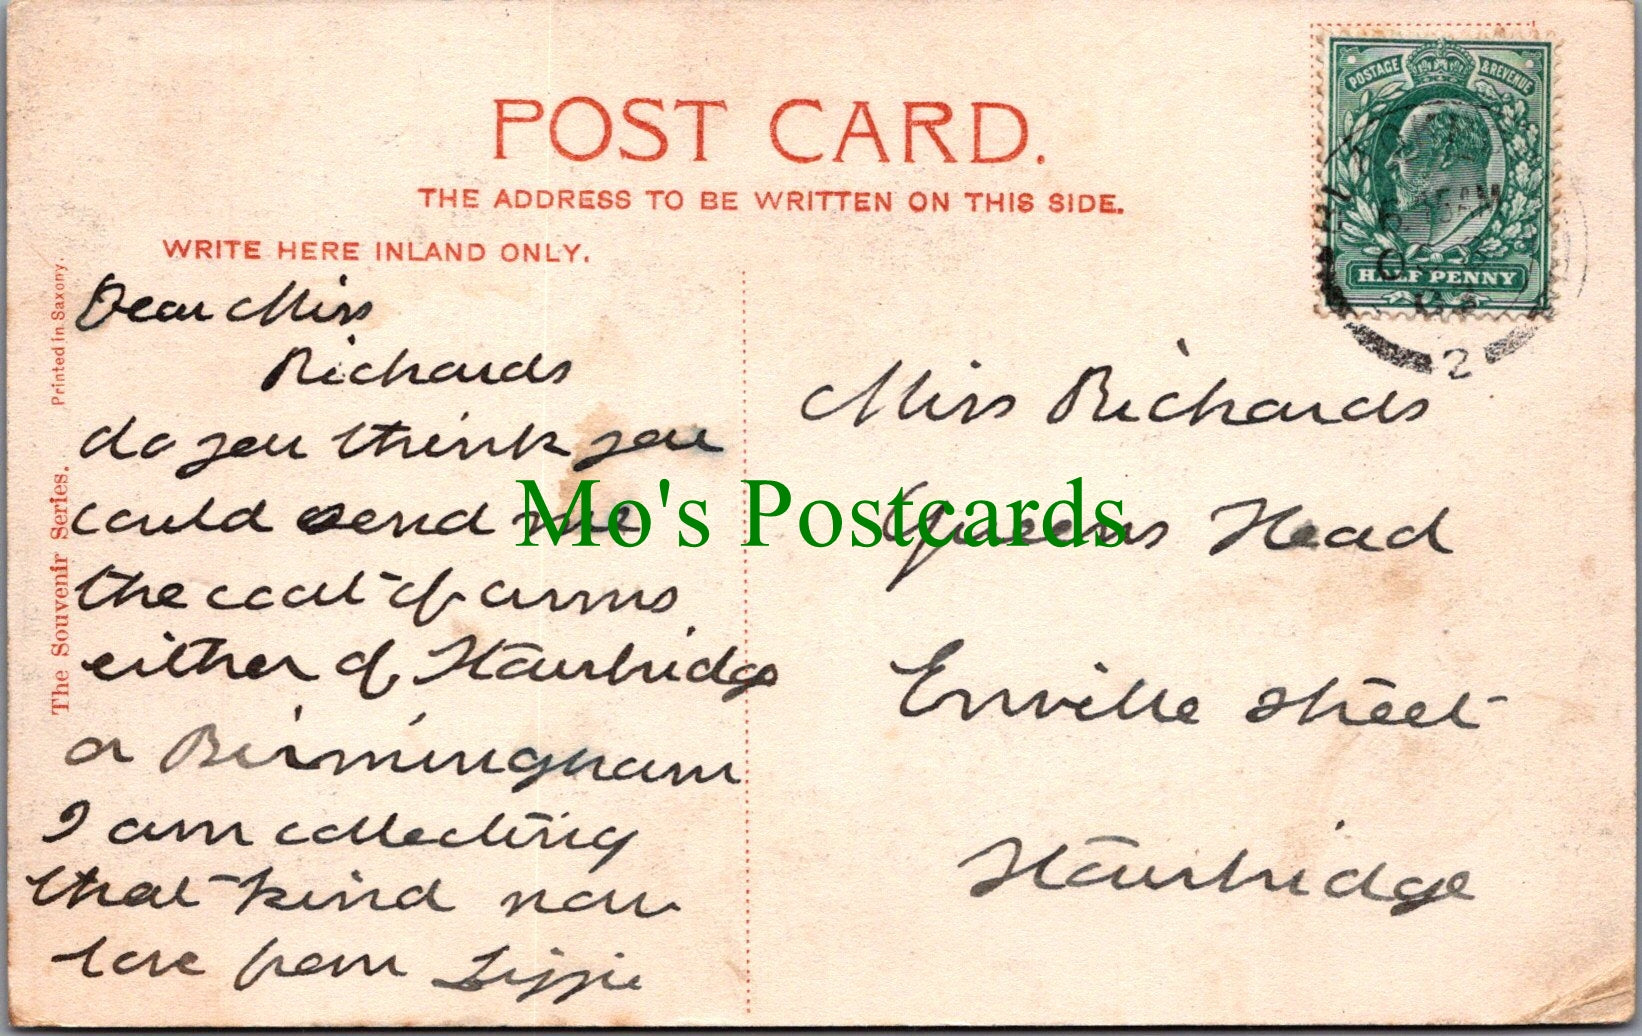 POST CARD.
THE ADDRESS TO BE WRITTEN ON THIS SIDE.
WRITE HERE INLAND ONLY.
The Souvenir Series. Printed in Saxony.
Dear Miss
Richards
do you think you
could send me
the coat of arms
either of Stourbridge
or Birmingham
I am collecting
that kind now
love from Lizzie
Miss Richards
Queens Head
Enville Street
Stourbridge
POSTAGE & REVENUE
HALF PENNY
AM
2
Mo's Postcards